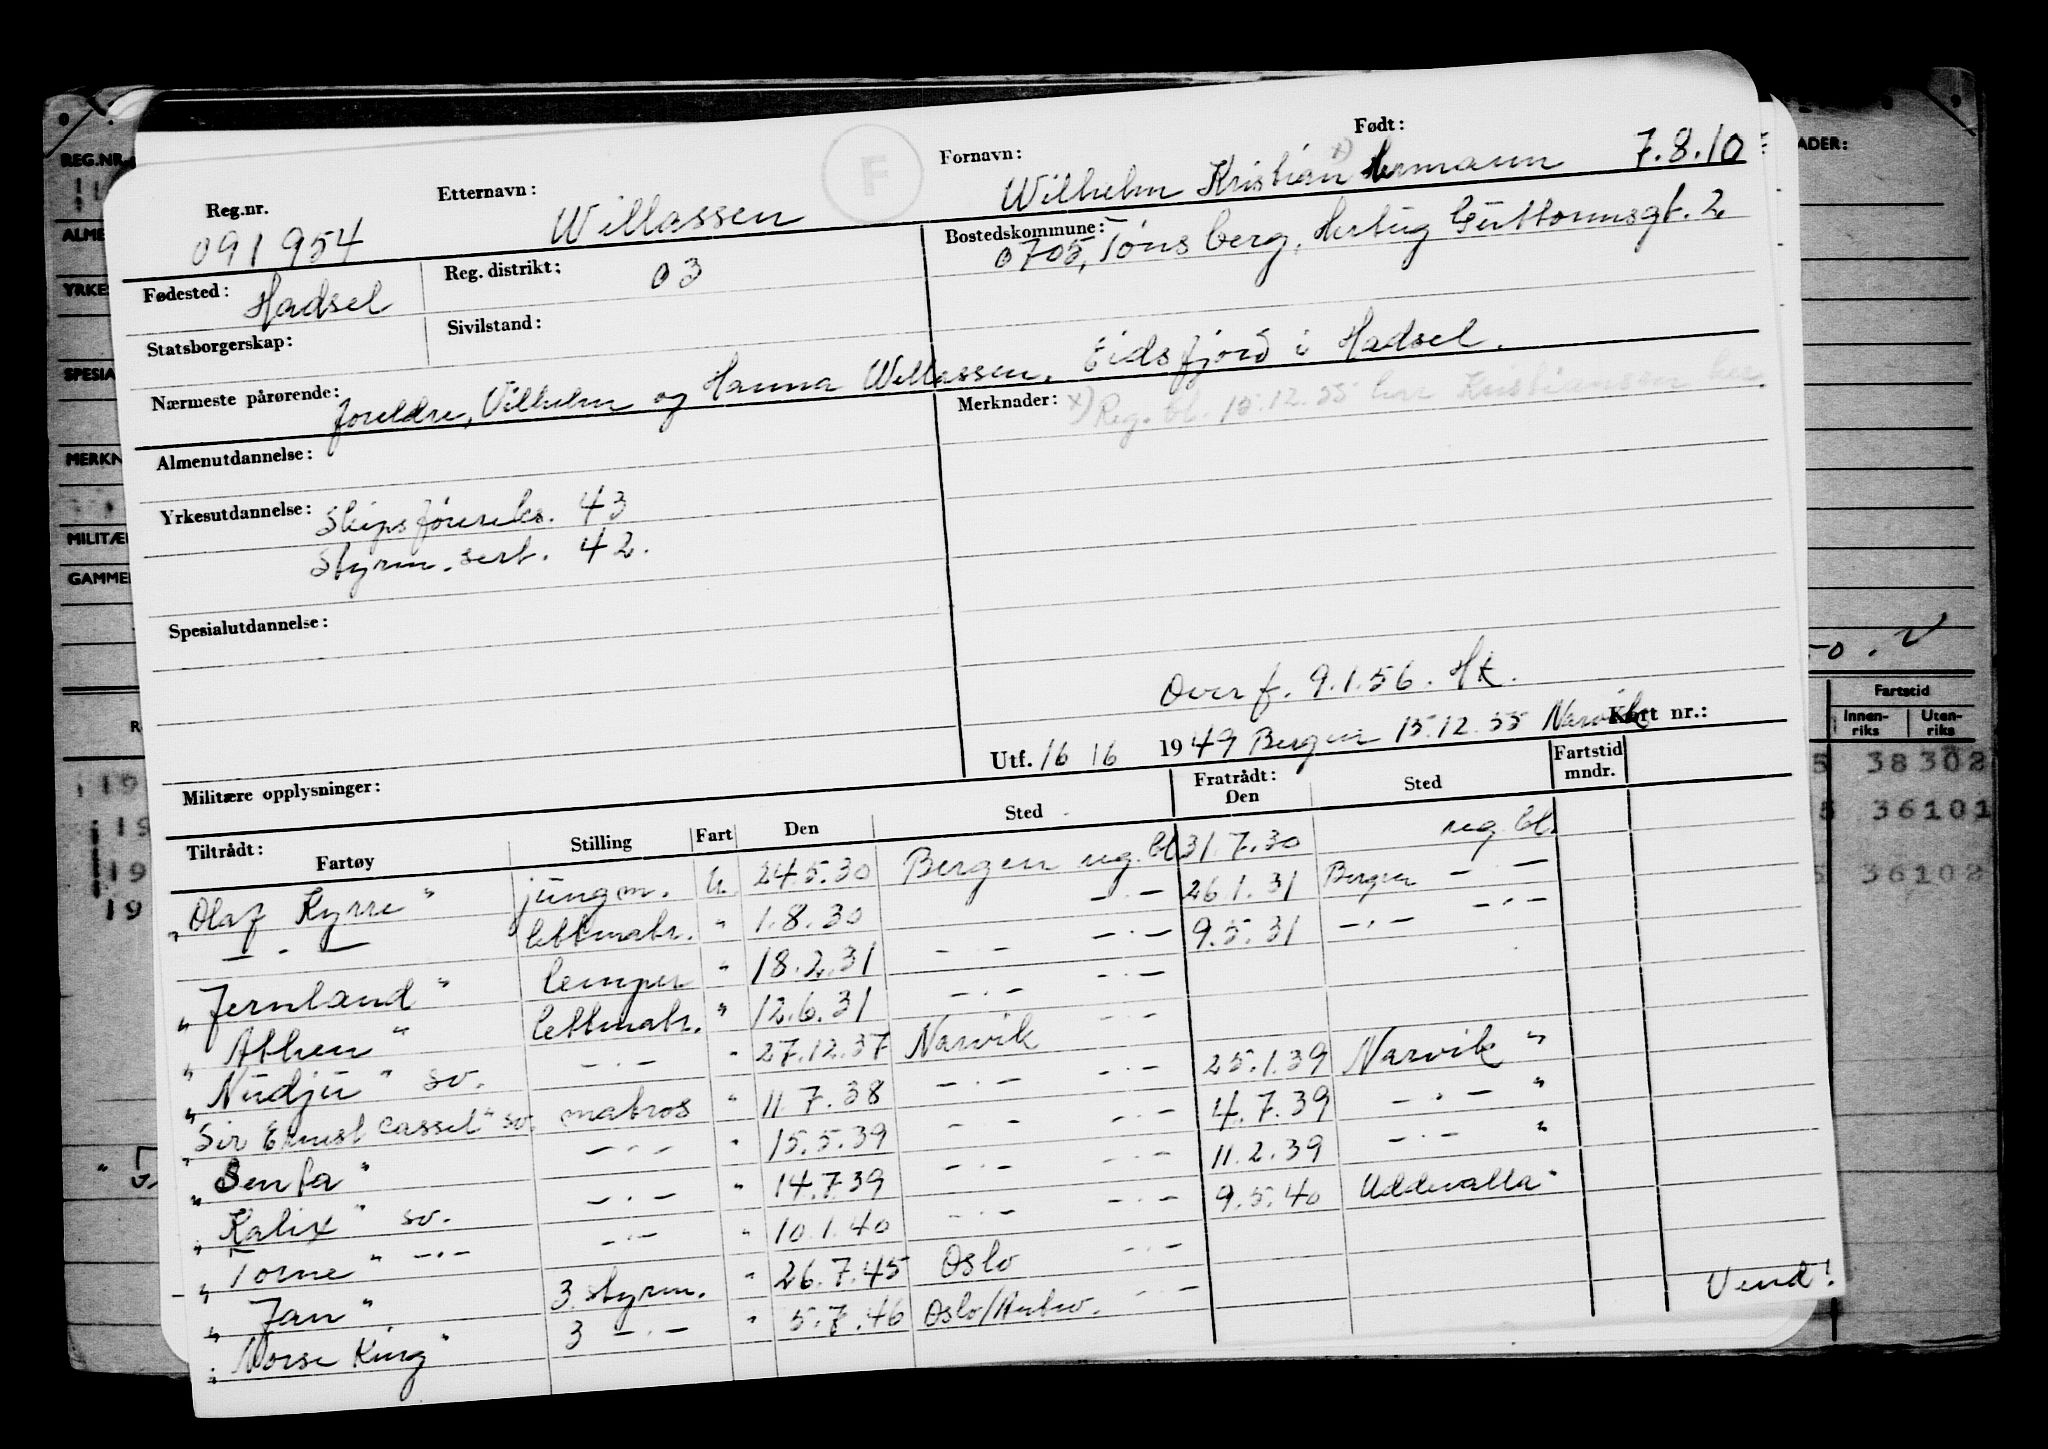 F
Reg.nr. Etternavn: Fornavn: Født:
091954 Willassen Wilhelm Kristian x) Hermann 7.8.10
Fødested: Hadsel Reg. distrikt: 03 Bostedskommune: 0705, Tønsberg, Hertug Guttormsgt. 2
Statsborgerskap: Sivilstand:
Nærmeste pårørende: foreldre, Vilhelm og Hanna Willassen, Eidsfjord i Hadsel.
Almenutdannelse: Merknader: x) Reg. bl. 15.12.55 Kristiansen
Yrkesutdannelse: Skipsførereks. 43
Styrm. sert. 42.
Spesialutdannelse:
Overf. 9.1.56. HK.
Utf. 16 16 1949 Bergen 15.12.55 Narvik Kort nr.:
Militære opplysninger:
Tiltrådt: Fartøy Stilling Fart Den Sted Fratrådt: Den Sted Fartstid mndr.
"Olaf Kyrre" jungm. U. 24.5.30 Bergen reg. bl. 31.7.30 reg. bl.
— . — lettmatr. " 1.8.30 — . — 26.1.31 Bergen —  —
"Jernland" lemper " 18.2.31 — — — . — 9.5.31 — . — — . —
"Athen" lettmatr. " 12.6.31 — . — — . —
"Nudju" sv. — . — " 27.12.37 Narvik — . — 25.1.39 Narvik "
"Sir Ernest Cassel" sv. matros " 11.7.38 — . — — . — 4.7.39 — . — "
"Senta" — . — " 15.5.39 — . — — . — 11.2.39 — . — "
"Kalix" sv. — . — " 14.7.39 — . — — . — 9.5.40 Uddevalla "
"Torne" — . — — . — " 10.1.40 — . — — . —
"Jan" 3. styrm. " 26.7.45 Oslo — . —
"Norse King" 3 — . — " 5.7.46 Oslo/Antw. — . —
Vend!
REG.NR.
YRKE
MILITÆ
GAMME
ADER:
Fartstid
Innen-riks Uten-riks
38302
36101
36102